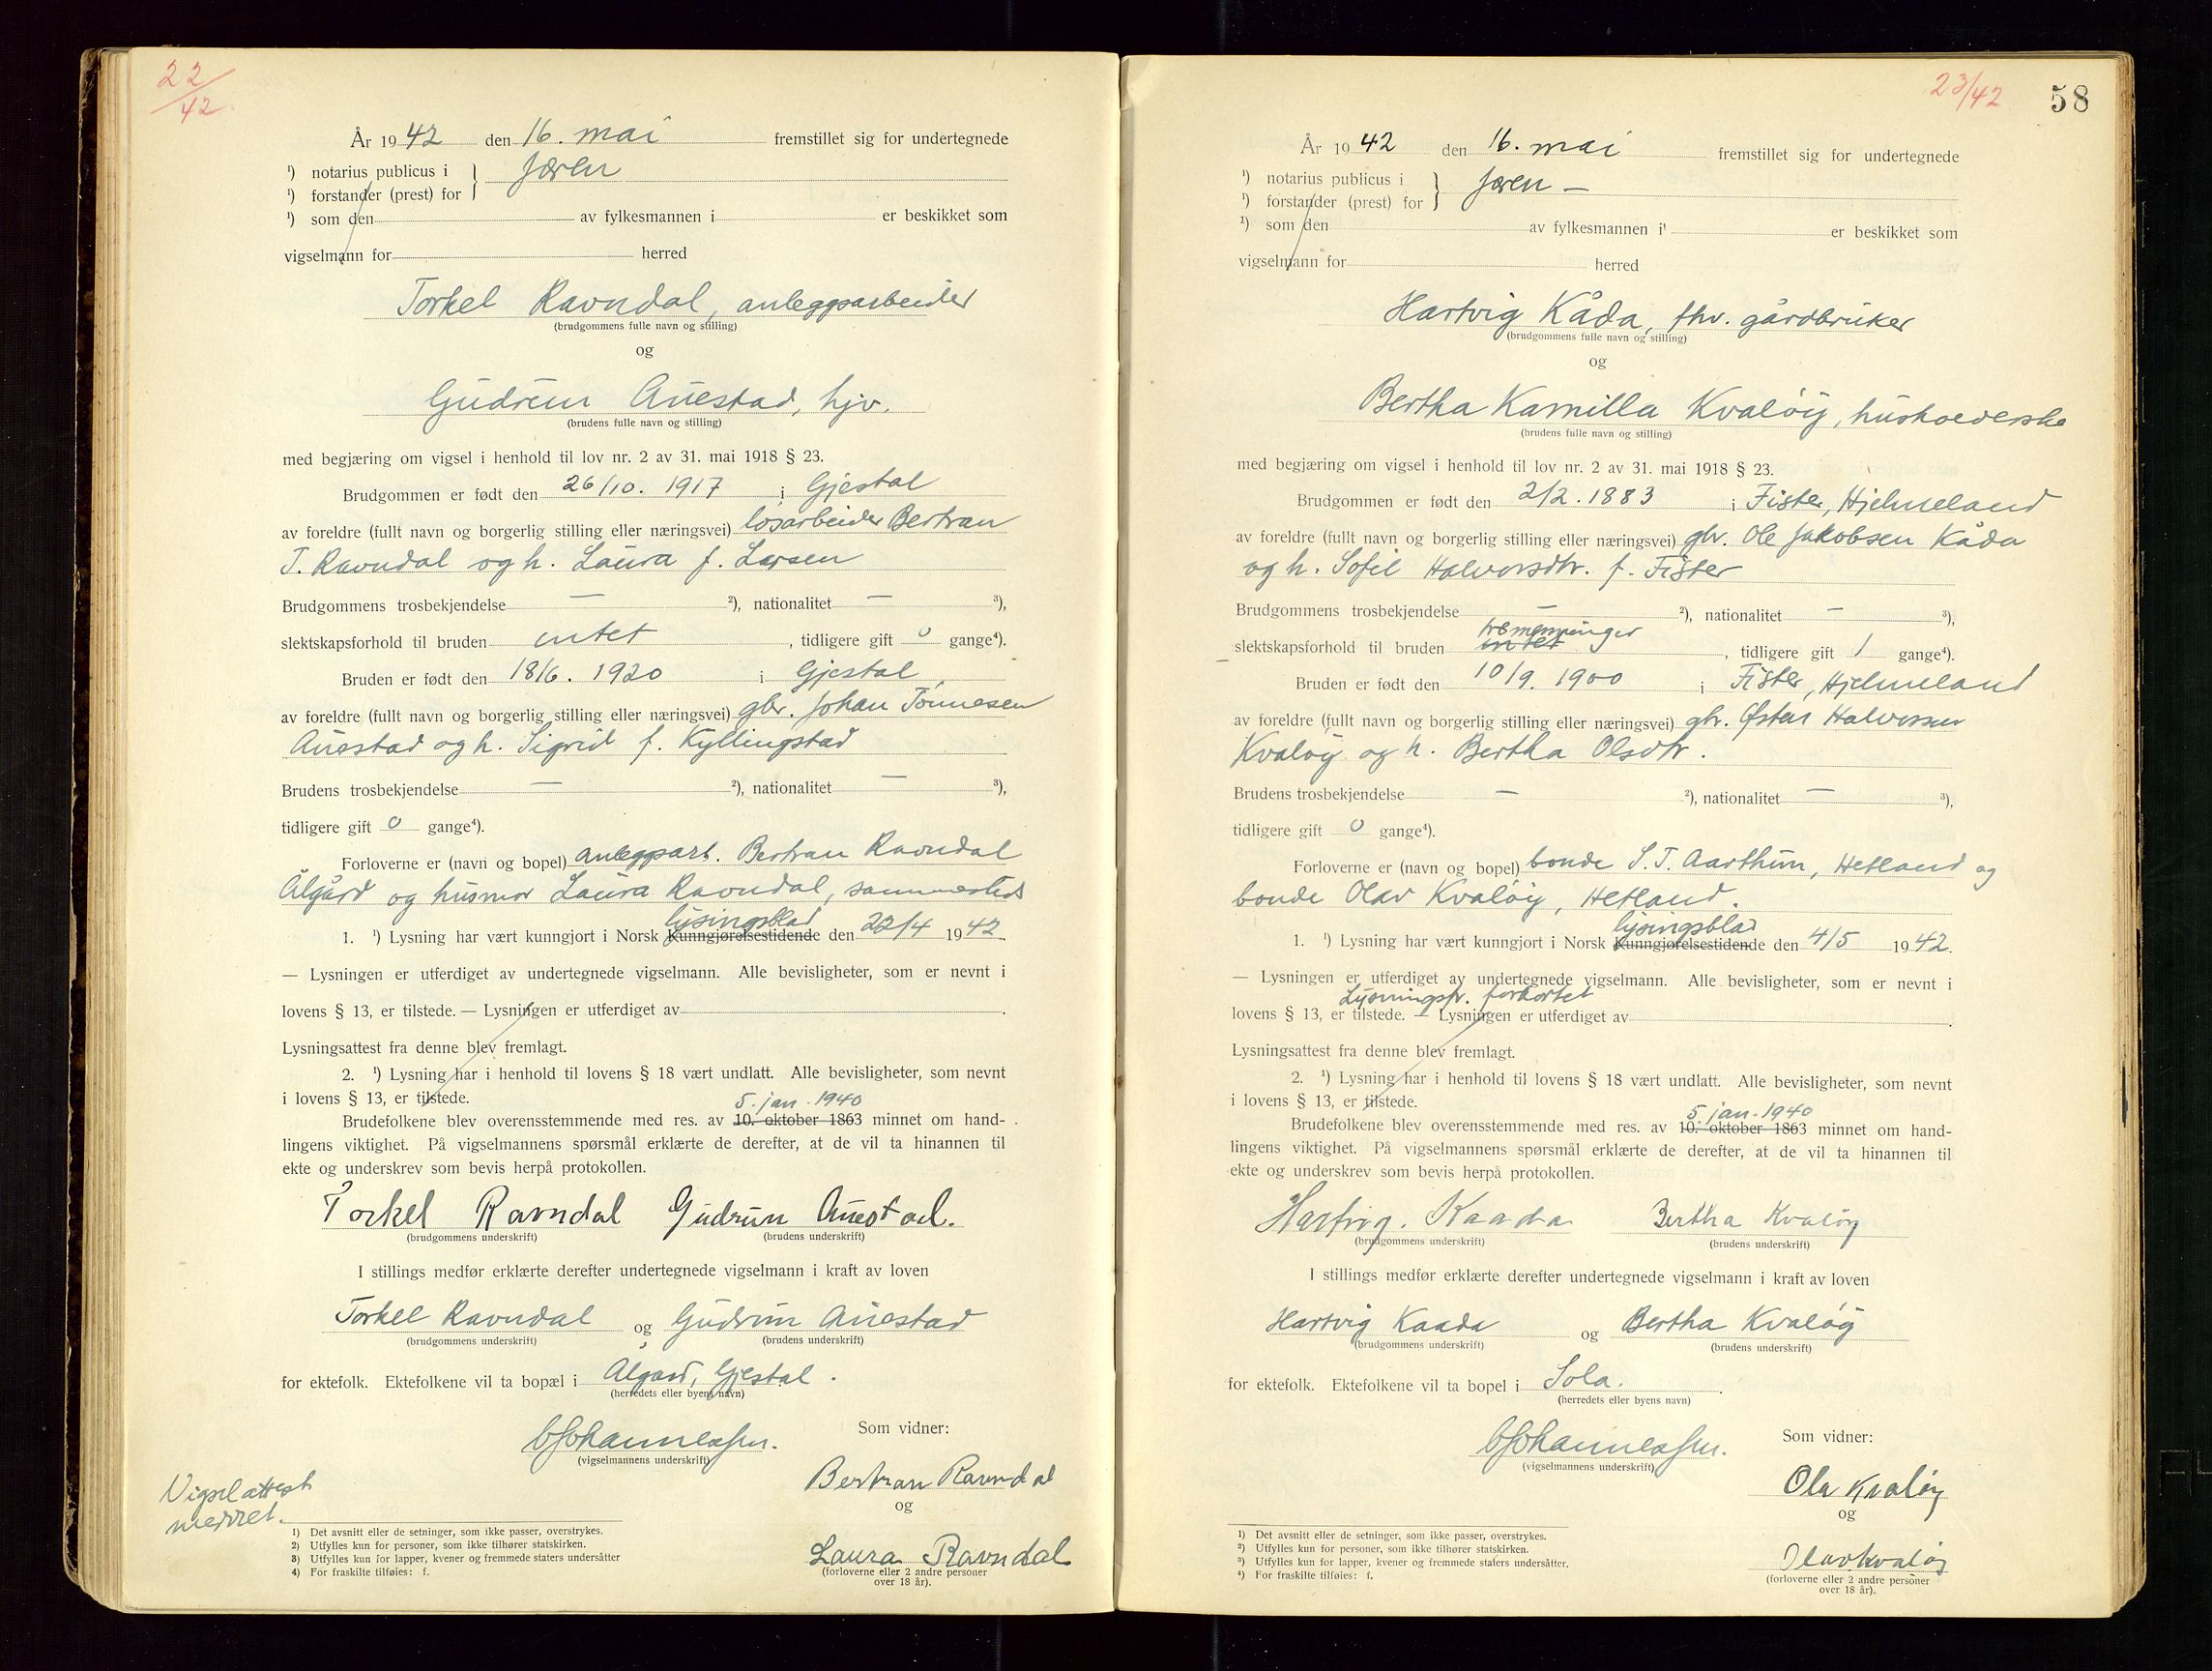 22/42
År 1942 den 16. mai fremstillet sig for undertegnede
¹) notarius publicus i } Jæren
¹) forstander (prest) for
¹) som den av fylkesmannen i er beskikket som
vigselmann for herred
Torkel Ravndal, anleggsarbeider
(brudgommens fulle navn og stilling)
og
Gudrun Auestad, hjv.
(brudens fulle navn og stilling)
med begjæring om vigsel i henhold til lov nr. 2 av 31. mai 1918 § 23.
Brudgommen er født den 26/10. 1917 i Gjestal
av foreldre (fullt navn og borgerlig stilling eller næringsvei) løsarbeider Bertran
T. Ravndal og h. Laura f. Larsen
Brudgommens trosbekjendelse — ²), nationalitet — ³),
slektskapsforhold til bruden intet, tidligere gift 0 gange⁴).
Bruden er født den 18/6. 1920 i Gjestal
av foreldre (fullt navn og borgerlig stilling eller næringsvei) gbr. Johan Tønnesen
Auestad og h. Sigrid f. Kyllingstad
Brudens trosbekjendelse — ²), nationalitet — ³),
tidligere gift 0 gange⁴).
Forloverne er (navn og bopel) anleggsarb. Bertran Ravndal
Ålgård og husmor Laura Ravndal, sammesteds
lysingsblad
1. ¹) Lysning har vært kunngjort i Norsk Kunngjørelsestidende den 22/4 1942.
— Lysningen er utferdiget av undertegnede vigselmann. Alle bevisligheter, som er nevnt i
lovens § 13, er tilstede. — Lysningen er utferdiget av
Lysningsattest fra denne blev fremlagt.
2. ¹) Lysning har i henhold til lovens § 18 vært undlatt. Alle bevisligheter, som nevnt
i lovens § 13, er tilstede.
5. jan. 1940
Brudefolkene blev overensstemmende med res. av 10. oktober 1863 minnet om hand-
lingens viktighet. På vigselmannens spørsmål erklærte de derefter, at de vil ta hinannen til
ekte og underskrev som bevis herpå protokollen.
Torkel Ravndal Gudrun Auestad.
(brudgommens underskrift) (brudens underskrift)
I stillings medfør erklærte derefter undertegnede vigselmann i kraft av loven
Torkel Ravndal og Gudrun Auestad
(brudgommens underskrift) (brudens underskrift)
for ektefolk. Ektefolkene vil ta bopæl i Ålgård, Gjestal.
(herredets eller byens navn)
Som vidner:
Johannessen.
(vigselmannens underskrift)
Bertran Ravndal
og
Laura Ravndal
(forloverne eller 2 andre personer
over 18 år).
Vigselattest
meddelt.
1) Det avsnitt eller de setninger, som ikke passer, overstrykes.
2) Utfylles kun for personer, som ikke tilhører statskirken.
3) Utfylles kun for lapper, kvener og fremmede staters undersåtter
4) For fraskilte tilføies: f.
23/42 58
År 1942 den 16. mai fremstillet sig for undertegnede
¹) notarius publicus i } Jæren —
¹) forstander (prest) for
¹) som den av fylkesmannen i er beskikket som
vigselmann for herred
Hartvig Kåda, fhv. gårdbruker
(brudgommens fulle navn og stilling)
og
Bertha Kamilla Kvaløy, husholderske
(brudens fulle navn og stilling)
med begjæring om vigsel i henhold til lov nr. 2 av 31. mai 1918 § 23.
Brudgommen er født den 2/2. 1883 i Fister, Hjelmeland
av foreldre (fullt navn og borgerlig stilling eller næringsvei) gbr. Ole Jakobsen Kåda
og h. Sofie Halvorsdtr. f. Fister
Brudgommens trosbekjendelse — ²), nationalitet — ³),
tremenninger
slektskapsforhold til bruden intet, tidligere gift 1 gange⁴).
Bruden er født den 10/9. 1900 i Fister, Hjelmeland
av foreldre (fullt navn og borgerlig stilling eller næringsvei) gbr. Østen Halvorsen
Kvaløy og h. Bertha Olsdtr.
Brudens trosbekjendelse — ²), nationalitet — ³),
tidligere gift 0 gange⁴).
Forloverne er (navn og bopel) bonde S. T. Aarthun, Hetland og
bonde Olav Kvaløy, Hetland.
lysingsblad
1. ¹) Lysning har vært kunngjort i Norsk Kunngjørelsestidende den 4/5 1942.
— Lysningen er utferdiget av undertegnede vigselmann. Alle bevisligheter, som er nevnt i
Lysningsfr. forkortet
lovens § 13, er tilstede. — Lysningen er utferdiget av
Lysningsattest fra denne blev fremlagt.
2. ¹) Lysning har i henhold til lovens § 18 vært undlatt. Alle bevisligheter, som nevnt
i lovens § 13, er tilstede.
5. jan. 1940
Brudefolkene blev overensstemmende med res. av 10. oktober 1863 minnet om hand-
lingens viktighet. På vigselmannens spørsmål erklærte de derefter, at de vil ta hinannen til
ekte og underskrev som bevis herpå protokollen.
Hartvig. Kaada Bertha Kvaløy
(brudgommens underskrift) (brudens underskrift)
I stillings medfør erklærte derefter undertegnede vigselmann i kraft av loven
Hartvig Kaada og Bertha Kvaløy
(brudgommens underskrift) (brudens underskrift)
for ektefolk. Ektefolkene vil ta bopel i Sola.
(herredets eller byens navn)
Som vidner:
Johannessen.
(vigselmannens underskrift)
Ola Kvaløy
og
Olav Kvaløy
(forloverne eller 2 andre personer
over 18 år).
1) Det avsnitt eller de setninger, som ikke passer, overstrykes.
2) Utfylles kun for personer, som ikke tilhører statskirken.
3) Utfylles kun for lapper, kvener og fremmede staters undersåtter.
4) For fraskilte tilføies: f.